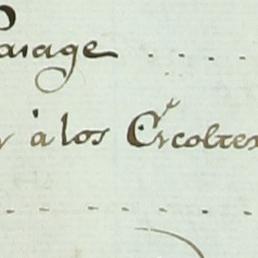 Paiage ....
à los Ercoltes